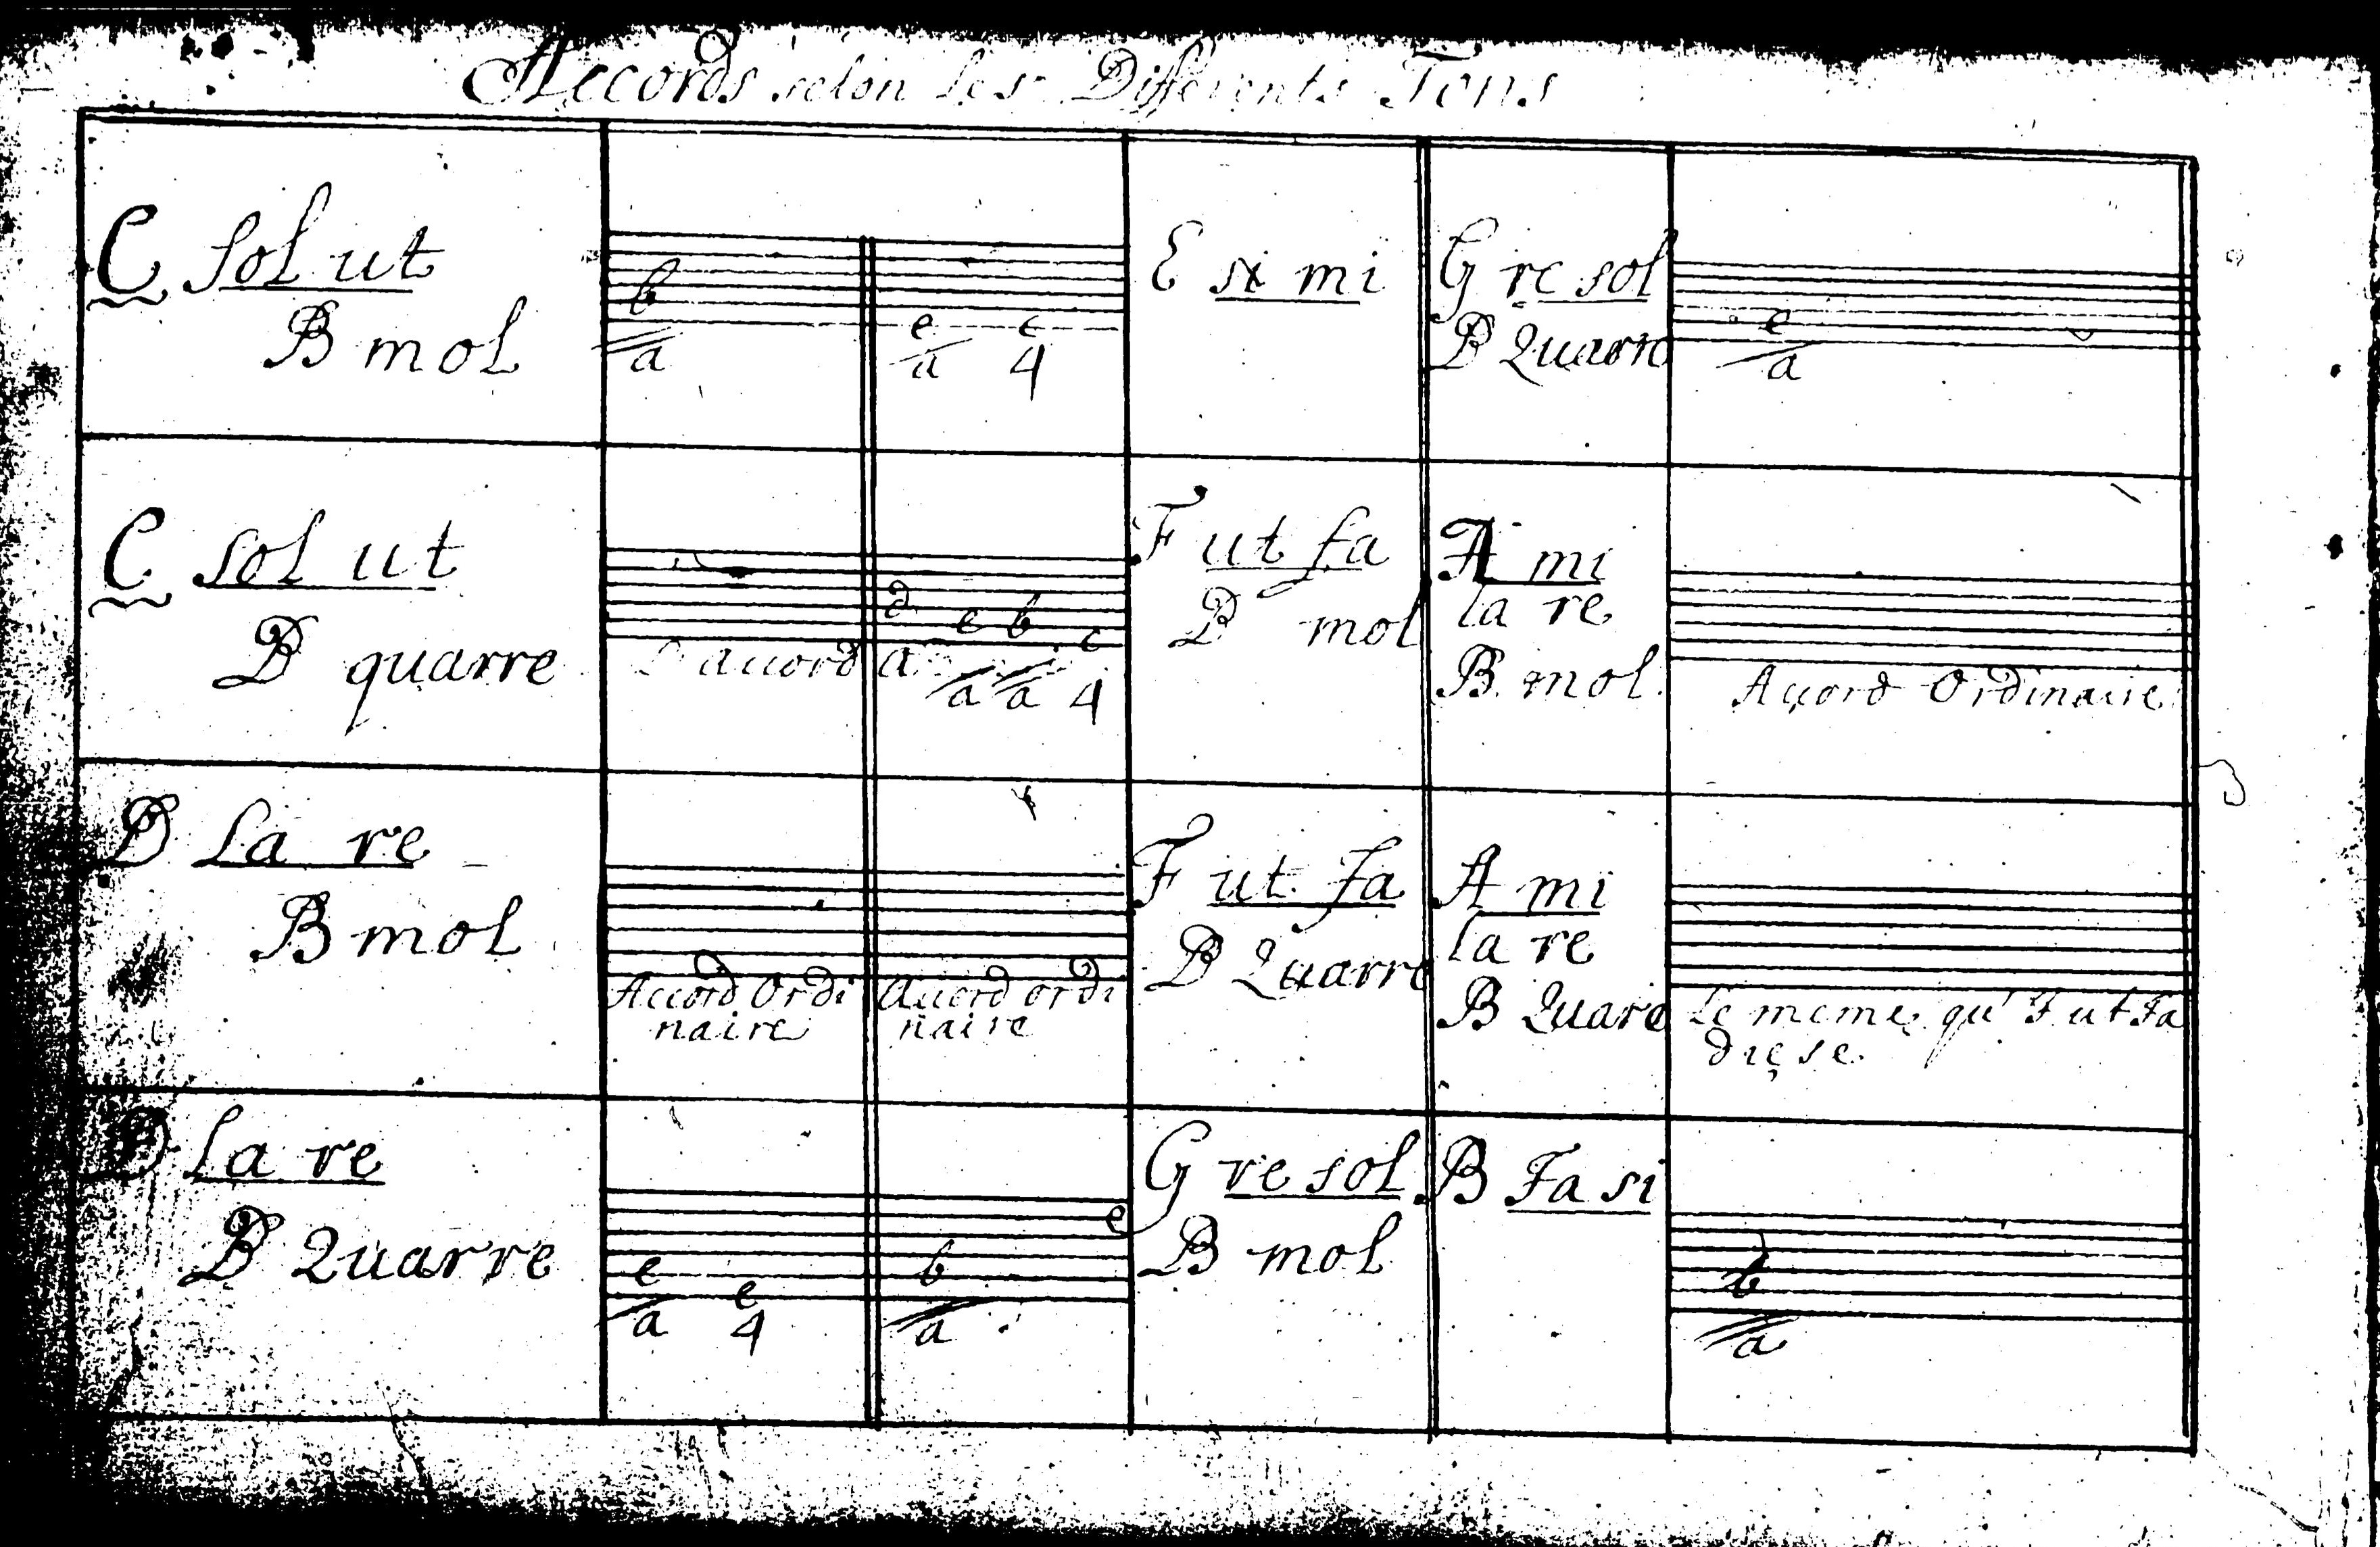 Accords selon Les Differents Tons
C sol ut
B mol
b
a
e e
a 4
E si mi
G re sol
B Quarre
e
a
C sol ut
B quarre
L accord
d e b e
a a a 4
F ut fa
B mol
A mi
la re
B mol
Accord Ordinaire
D La re
B mol
Accord Ordi
naire
accord ordi
naire
F ut fa
B Quarre
A mi
la re
B Quare
Le meme qu' F ut Fa
diese
D La re
B Quarre
e e
a 4
b e
a
G re sol
B mol
B Fa si
b
a